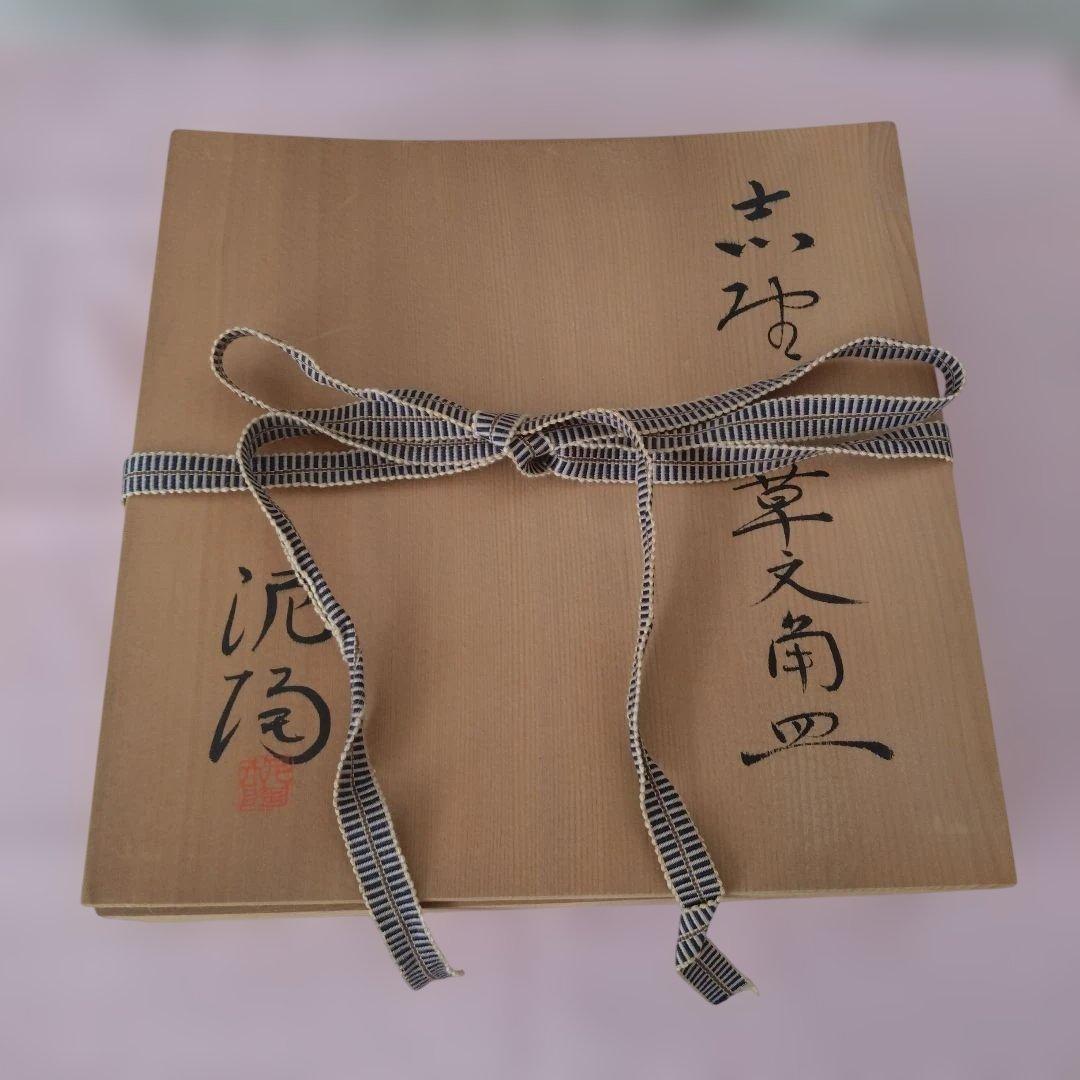 志野草文角皿
泥陶